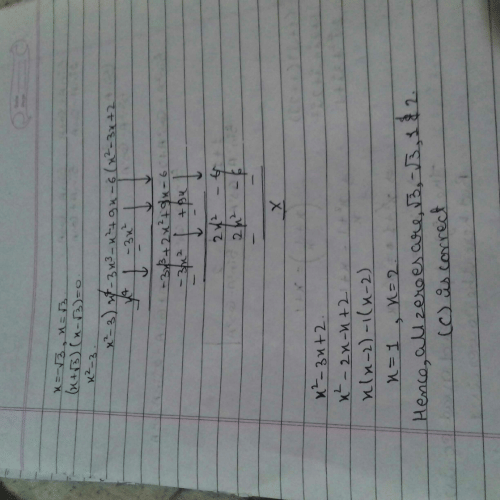 x=-√3, x=√3
(x+√3)(x-√3)=0
x²-3
x²-3) x⁴-3x³-x²+9x-6 (x²-3x+2
x⁴ -3x²
- -
-3x³+2x²+9x-6
-3x² +9x
- -
2x² -6
2x² -6
- -
x
x²-3x+2
x²-2x-x+2
x(x-2)-1(x-2)
x=1, x=2
Hence, all zeroes are, √3, -√3, 1 & 2.
(C) is correct